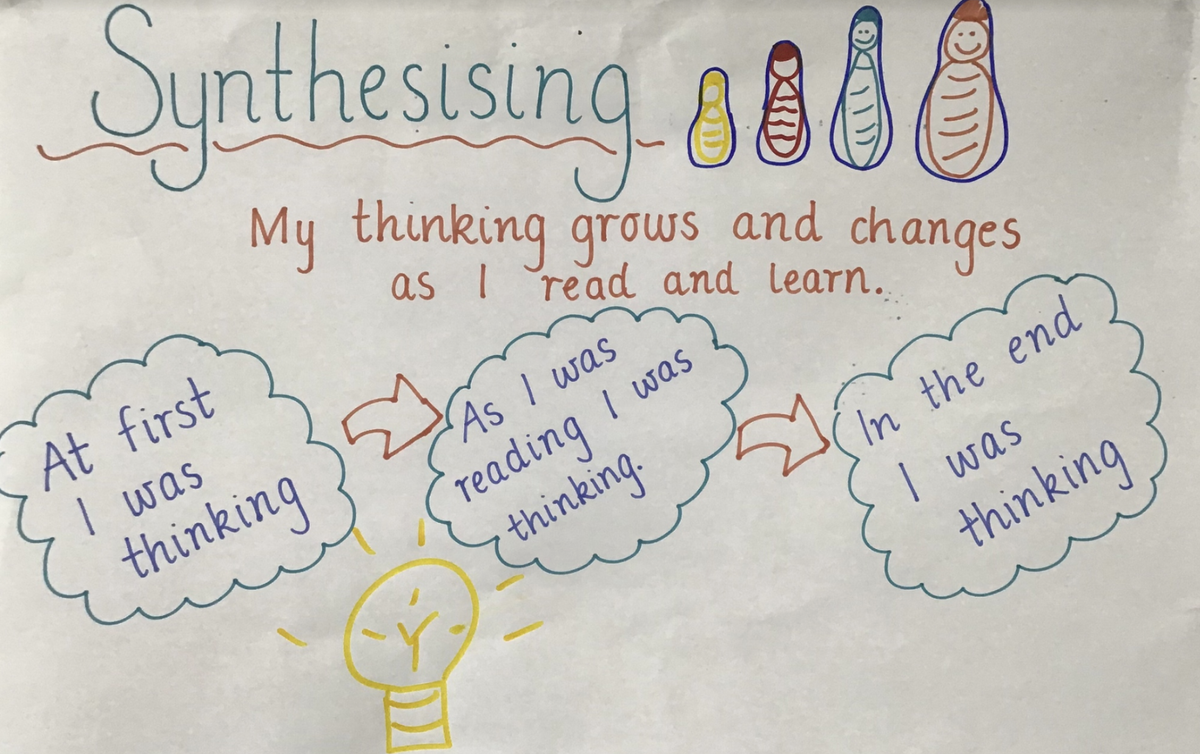 Synthesising
My thinking grows and changes
as I read and learn.
At first
I was
thinking
As I was
reading I was
thinking.
In the end
I was
thinking